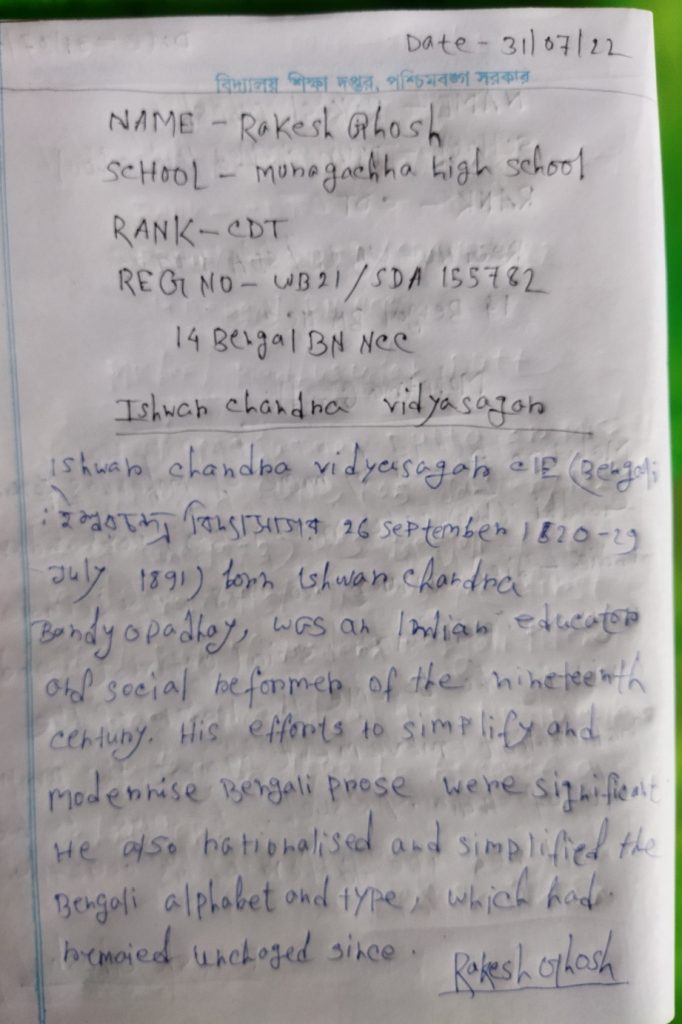 Date - 31/07/22
বিদ্যালয় শিক্ষা দপ্তর, পশ্চিমবঙ্গ সরকার
NAME - Rakesh Ghosh
SCHOOL - Muragachha high school
RANK - CDT
REG NO - WB21/SDA 155782
14 Bengal BN NCC
Ishwar chandra vidyasagar
Ishwar chandra vidyasagar CIE (Bengali
: ঈশ্বরচন্দ্র বিদ্যাসাগর 26 september 1820-29
July 1891) born Ishwar Chandra
Bandyopadhay, was an Indian educator
and social reformer of the nineteenth
century. His efforts to simplify and
modernise Bengali prose were significant
He also rationalised and simplified the
Bengali alphabet and type, which had
remaied unchaged since.
Rakesh Ghosh